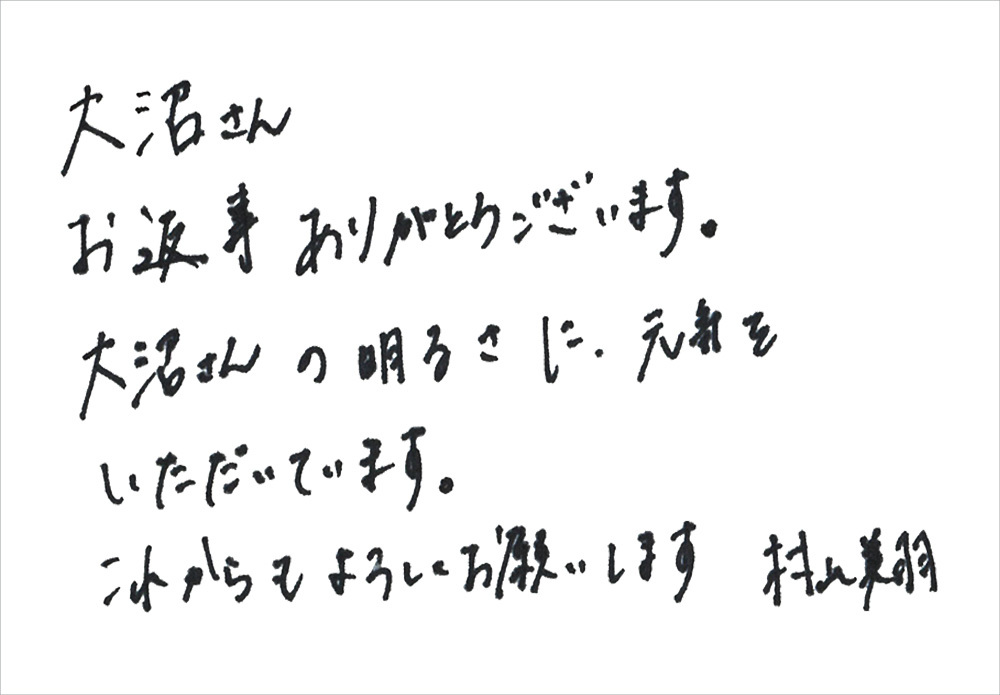 大沼さん
お返事ありがとうございます。
大沼さんの明るさに、元気を
いただいています。
これからもよろしくお願いします 村山美羽